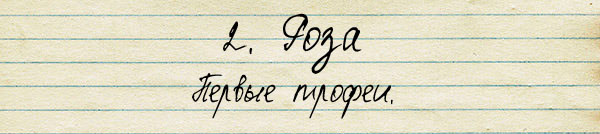 2. Роза
Первые трофеи.